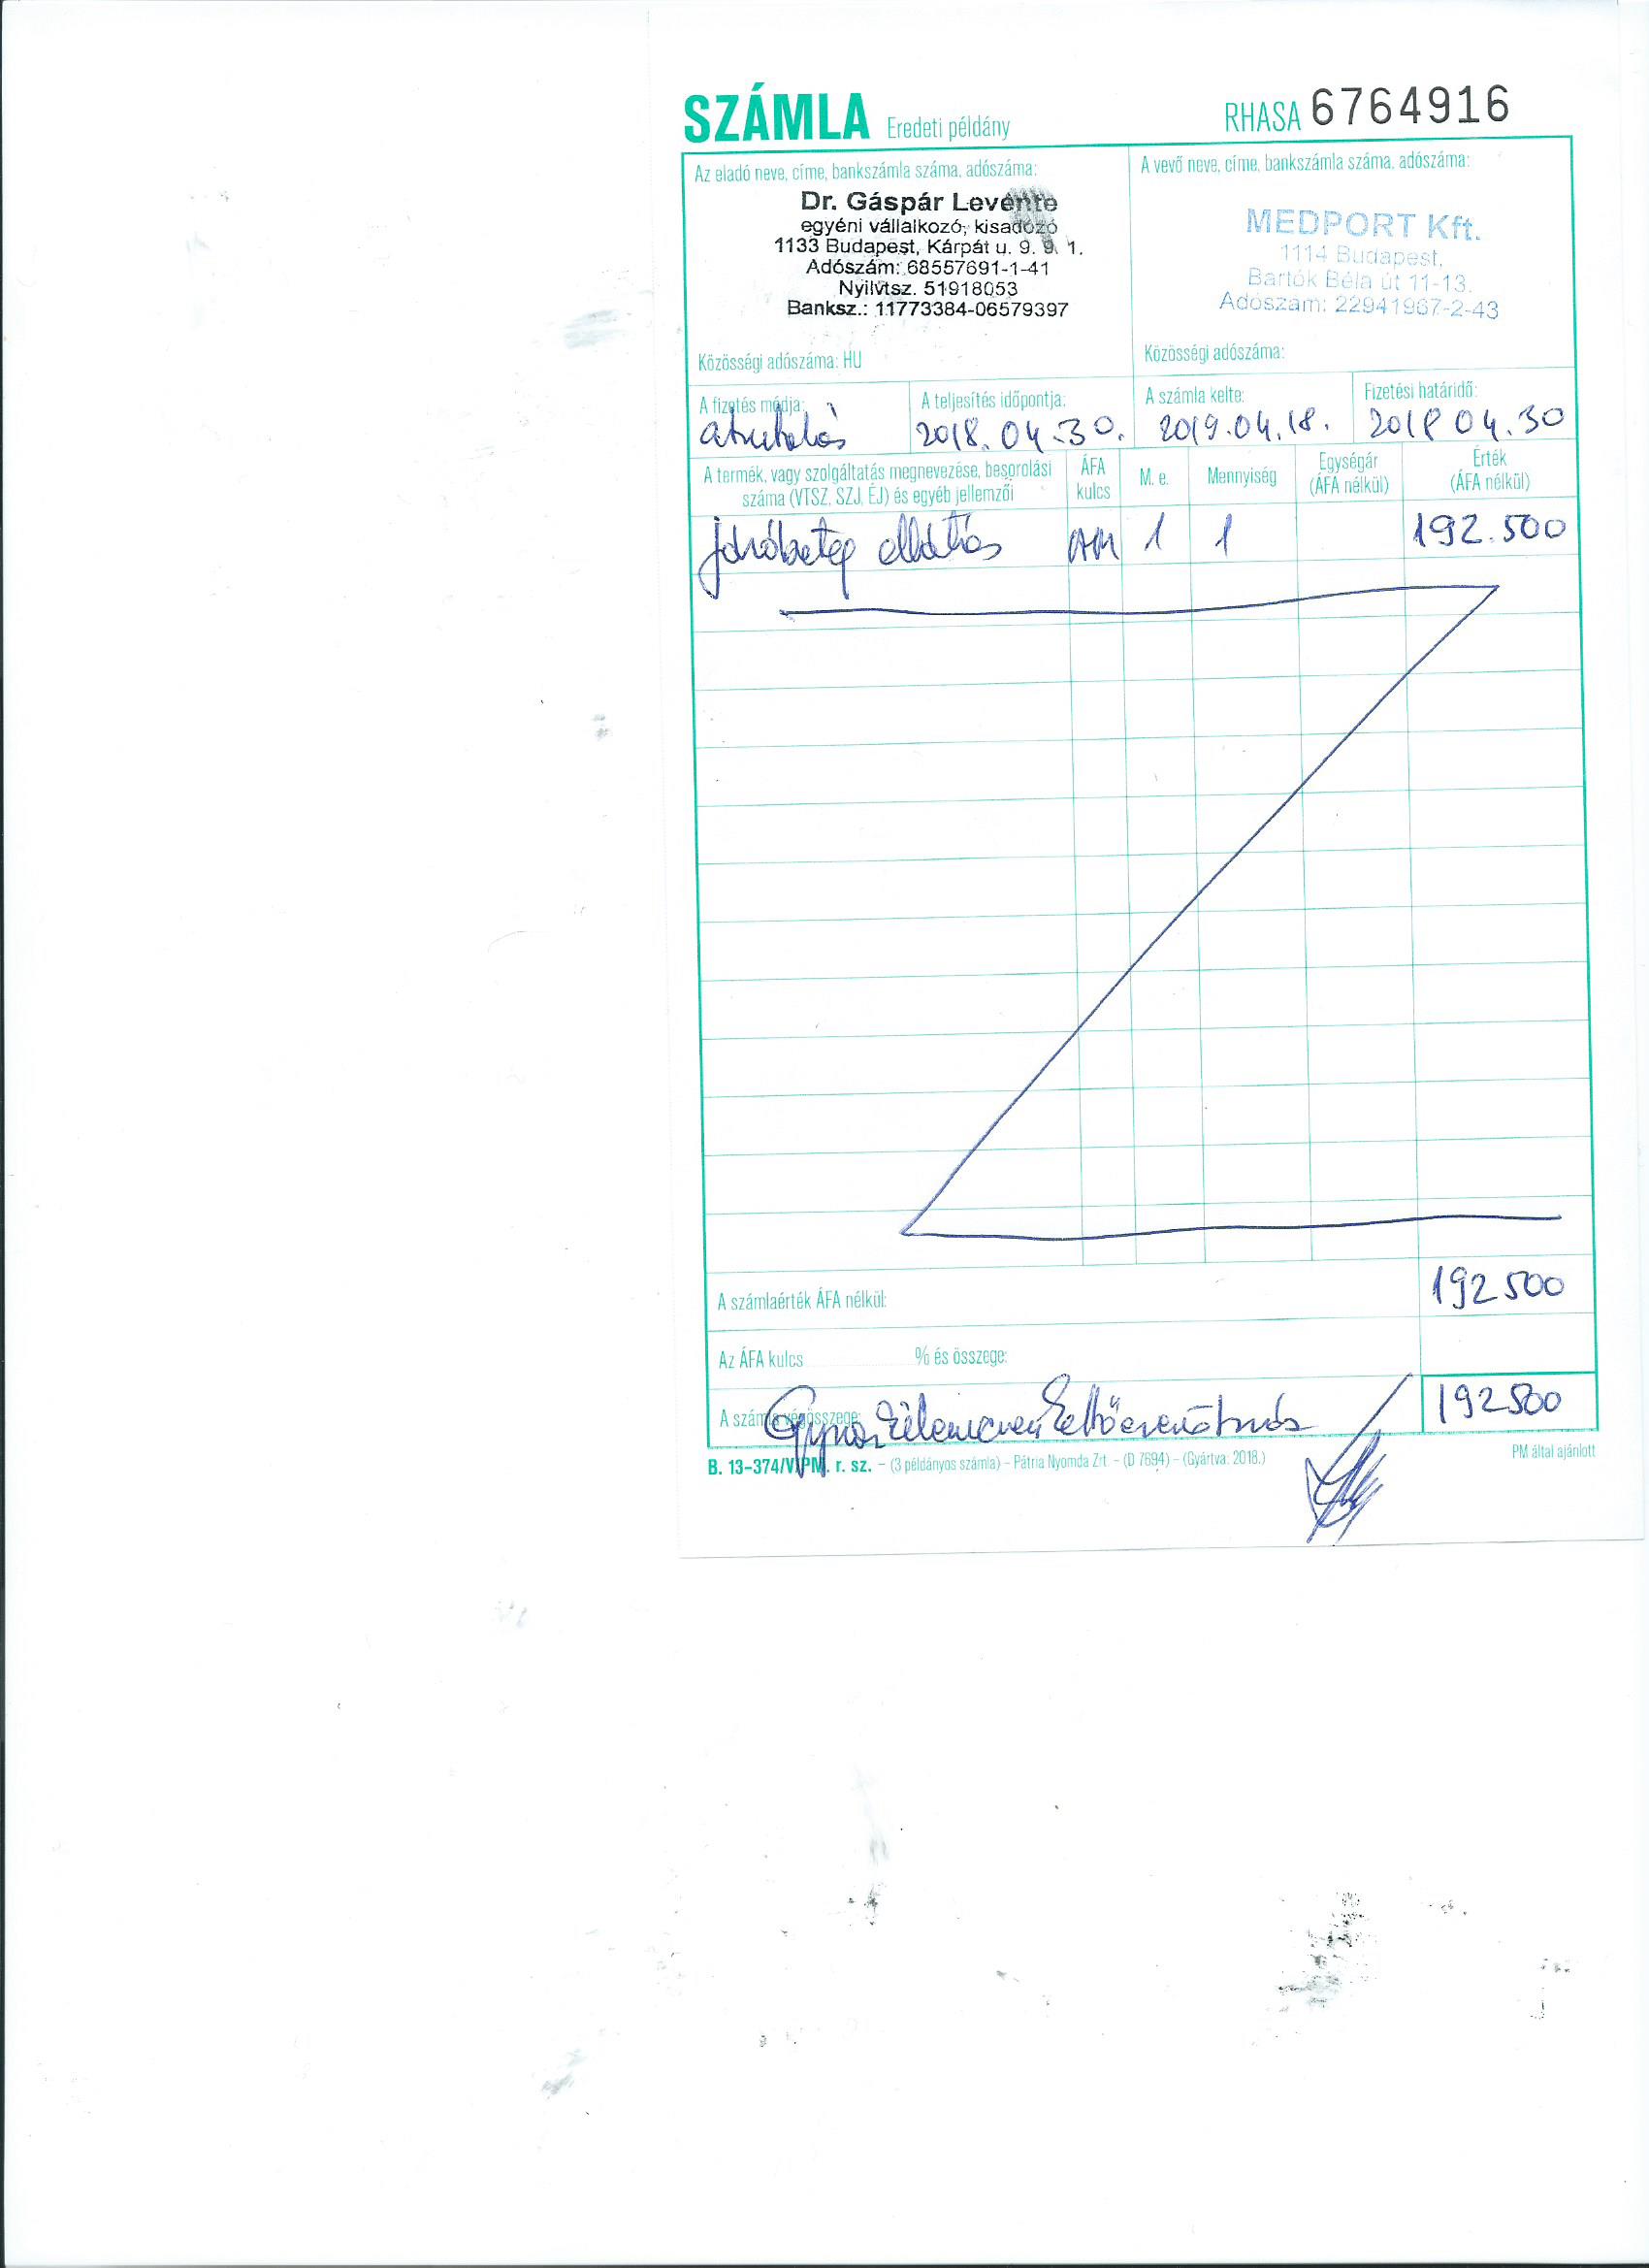 SZÁMLA Eredeti példány RHASA 6764916
Az eladó neve, címe, bankszámla száma, adószáma:
Dr. Gáspár Levente
egyéni vállalkozó, kisadózó
1133 Budapest, Kárpát u. 9. 9. 1.
Adószám: 68557691-1-41
Nyilvtsz. 51918053
Banksz.: 11773384-06579397
Közösségi adószáma: HU
A vevő neve, címe, bankszámla száma, adószáma:
MEDPORT Kft.
1114 Budapest,
Bartók Béla út 11-13.
Adószám: 22941967-2-43
Közösségi adószáma:
A fizetés módja: A teljesítés időpontja: A számla kelte: Fizetési határidő:
átutalás 2018. 04. 30. 2019. 04. 18. 2018 04. 30
A termék, vagy szolgáltatás megnevezése, besorolási száma (VTSZ, SZJ, ÉJ) és egyéb jellemzői ÁFA kulcs M. e. Mennyiség Egységár (ÁFA nélkül) Érték (ÁFA nélkül)
járóbeteg ellátás AM 1 1 192.500
A számlaérték ÁFA nélkül: 192 500
Az ÁFA kulcs % és összege:
A számla végösszege: 192 500
B. 13-374/V. PM. r. sz. – (3 példányos számla) – Pátria Nyomda Zrt. – (D 7694) – (Gyártva: 2018.) PM által ajánlott